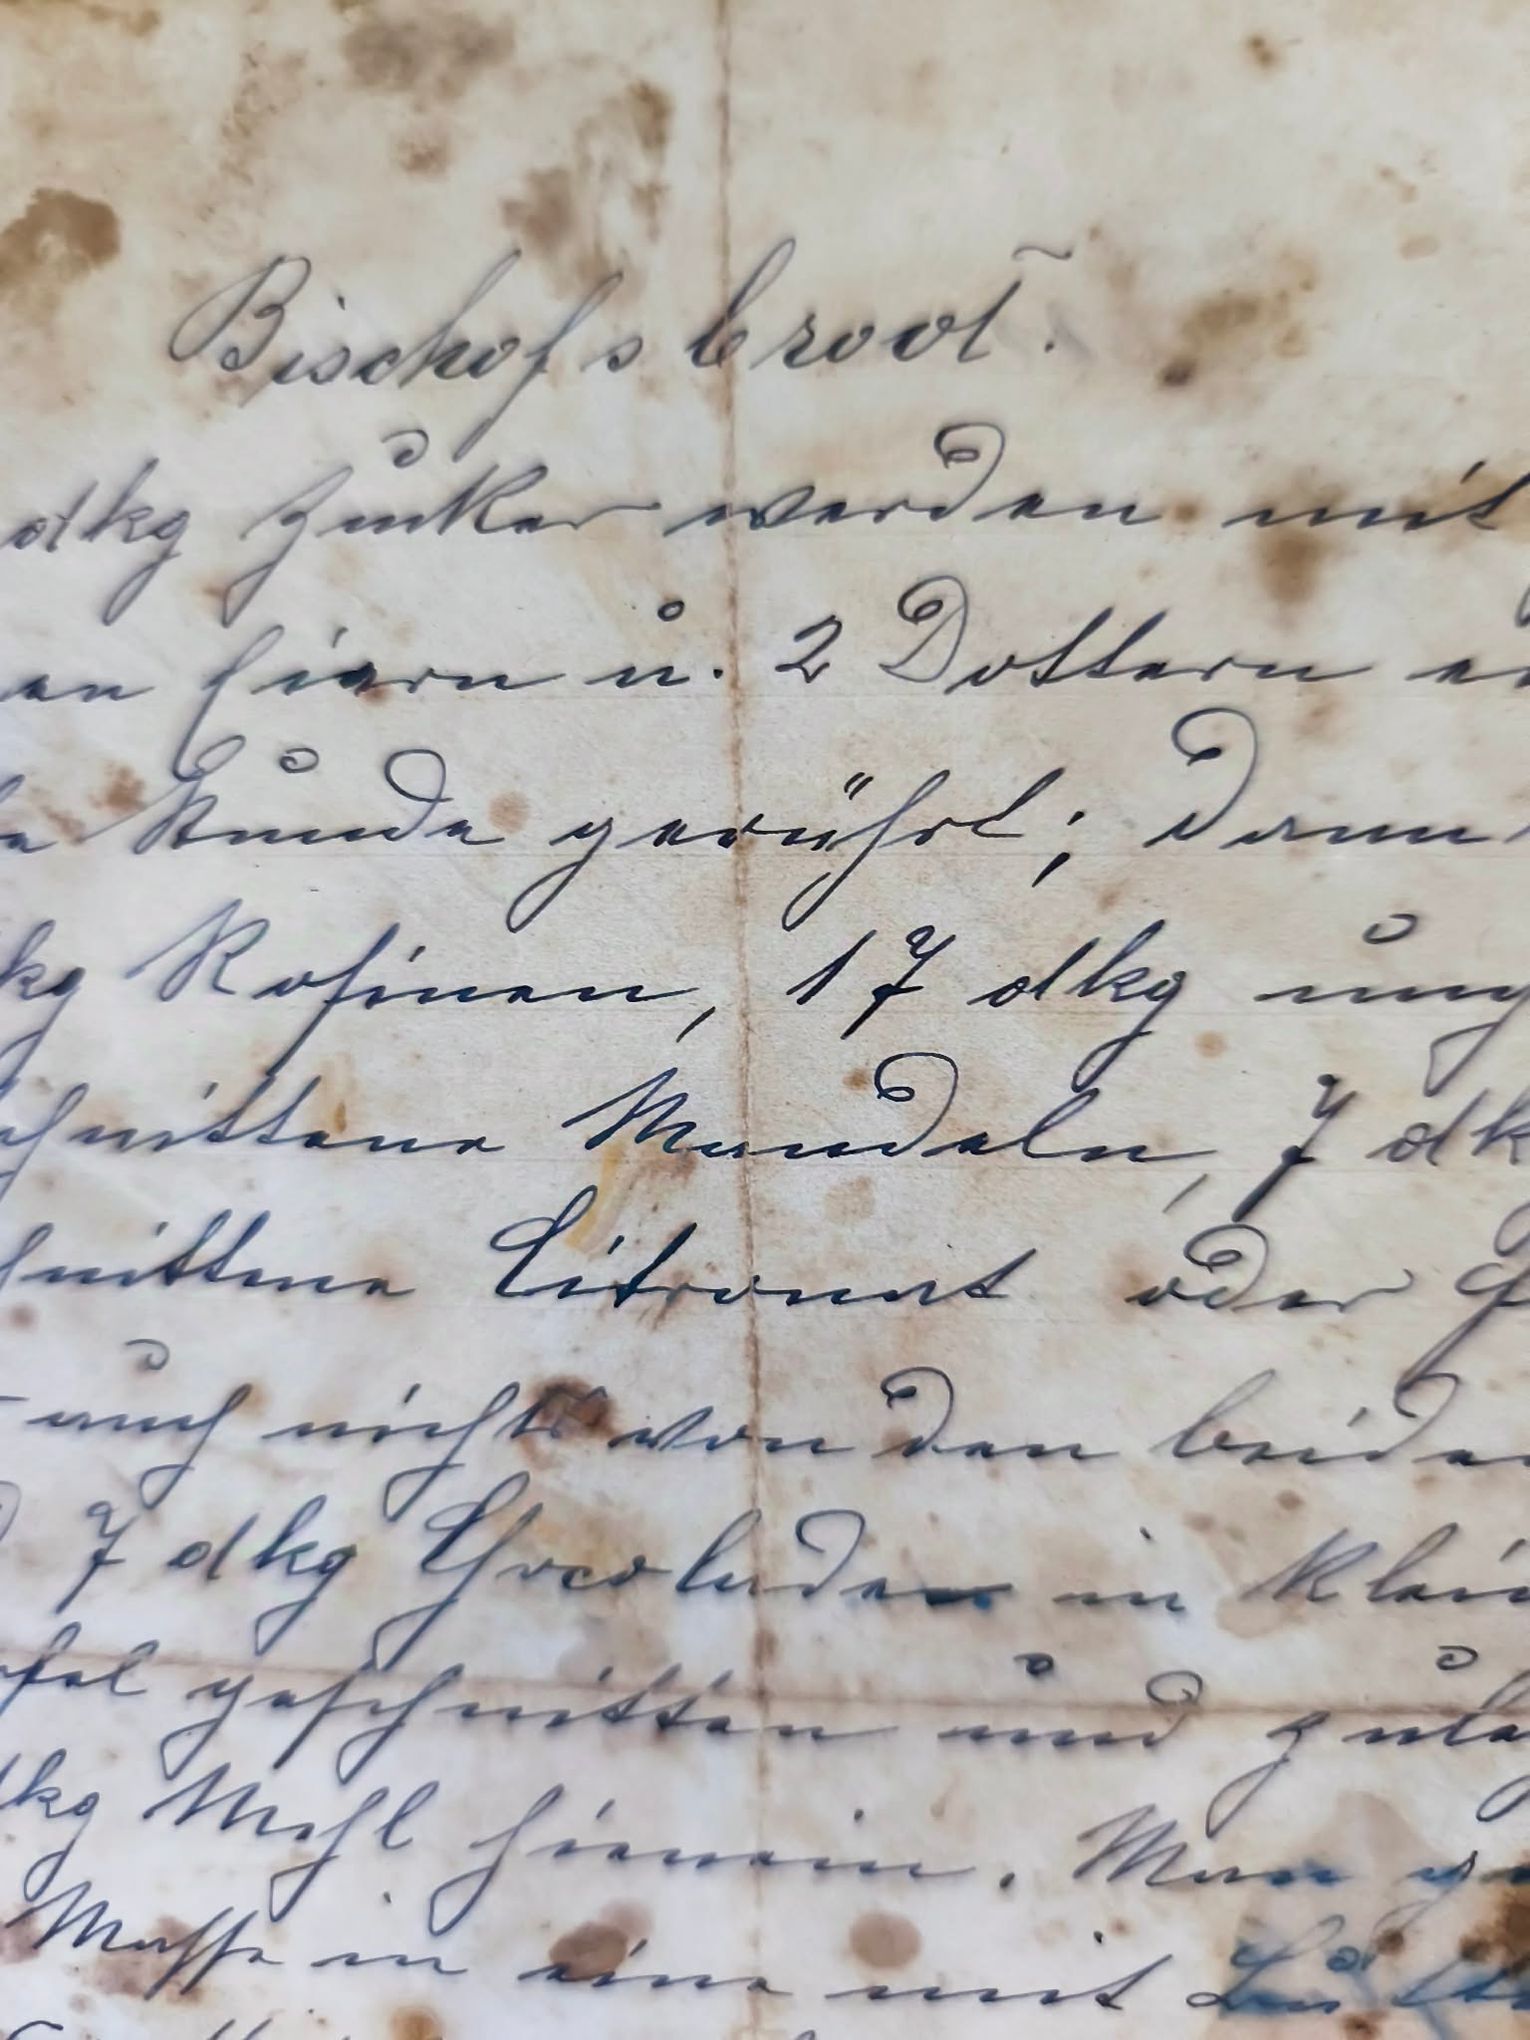 Bischofsbrot.
dkg Zucker werden mit
en Eiern u. 2 Dottern
Stunde gerührt; dann
kg Rosinen, 17 dkg ung
schnittene Mandeln, 7 dk
hnittene Citronat oder
auch nichts von den beiden
7 dkg Chocolade in klein
fel geschnitten und zule
dkg Mehl hienein. Man g
Masse in eine mit Butter